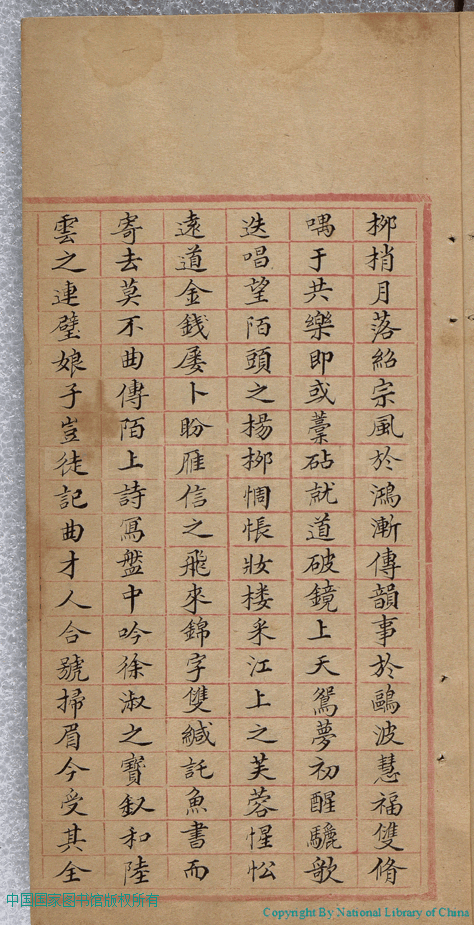 柳梢月落紹宗風於鴻漸傳韻事於鷗波慧福雙脩
喁于共樂即或藁砧就道破鏡上天鴛夢初醒驪歌
迭唱望陌頭之楊柳惆悵妝楼采江上之芙蓉惺忪
遠道金錢屡卜盼雁信之飛來錦字雙緘託魚書而
寄去莫不曲傳陌上詩寫盤中吟徐淑之寶釵和陸
雲之連璧娘子豈徒記曲才人合號掃眉今受其全
中国国家图书馆版权所有
Copyright By National Library of China